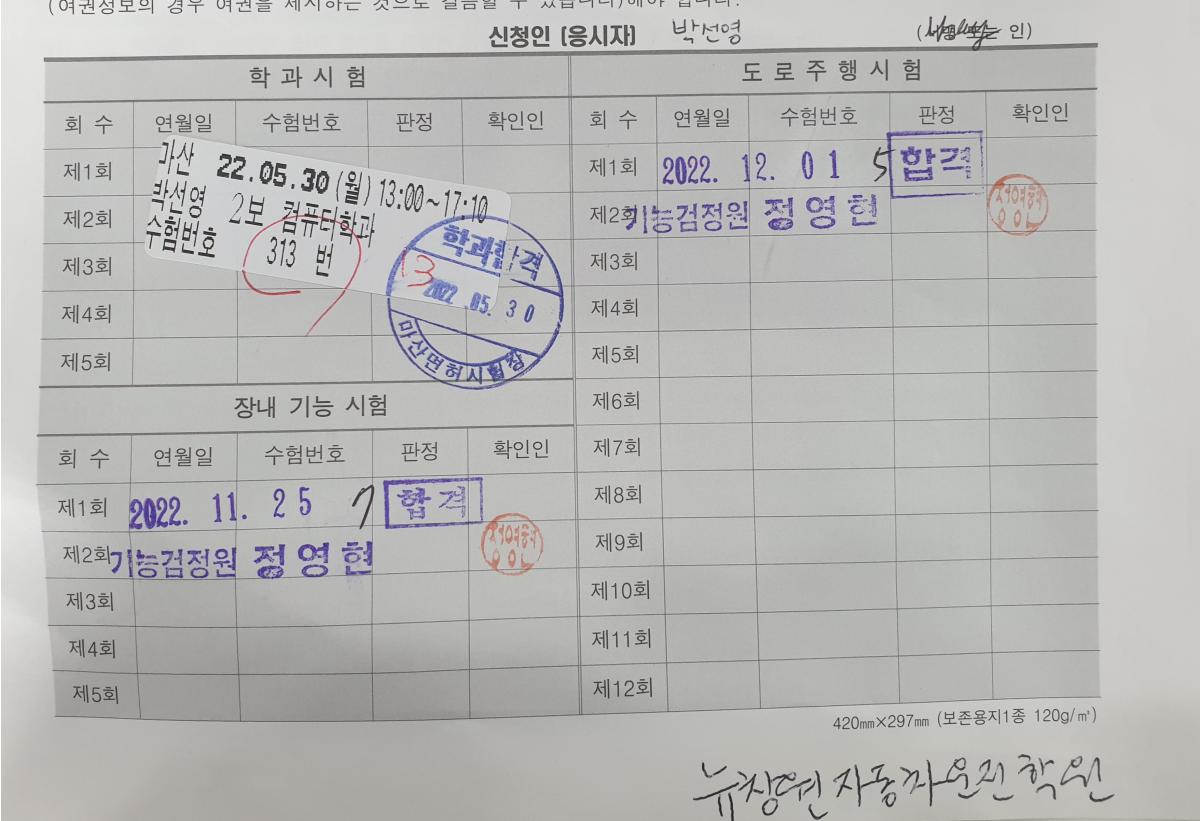 (여권정보의 경우 여권을 제시하는 것으로 갈음할 수 있습니다)해야 합니다.
신청인 (응시자) 박선영 ( 인)
학 과 시 험
회 수 연월일 수험번호 판정 확인인
제1회
제2회
제3회
제4회
제5회
마산 22.05.30 (월) 13:00~17:10
박선영 2보 컴퓨터학과
수험번호 313 번
13
학과합격
2022 .05. 30
마산면허시험장
장내 기능 시험
회 수 연월일 수험번호 판정 확인인
제1회 2022. 11. 25 7 합격
제2회 기능검정원 정영현
제3회
제4회
제5회
도 로 주 행 시 험
회 수 연월일 수험번호 판정 확인인
제1회 2022. 12. 01 5 합격
제2회 기능검정원 정영현
제3회
제4회
제5회
제6회
제7회
제8회
제9회
제10회
제11회
제12회
420㎜×297㎜ (보존용지1종 120g/㎡)
뉴창원자동차운전학원